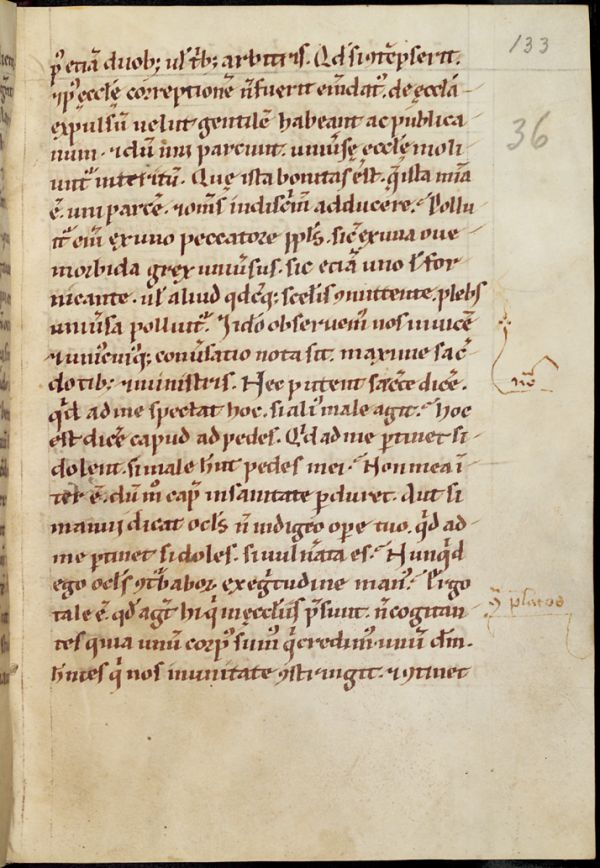 133
36
p᷒ etiā duob; ul' t̄b; arbitris. Qd' si ɔtēpserit.
⁊ ip᷒ eccłe correptionē n̄ fuerit em̄dat᷒. de ecclā
expulsū velut gentilē habeant ac publica
num. ⁊ dū uni parcunt. uniūsę eccłę moli
unt᷑ interitū. Que ista bonitas est. q̄ ista mīa
ē. uni parcē. ⁊ om̄s indisc̄m adducere. Pollu
it᷑ em̄ ex uno peccatore ppl's. sic᷑ ex una oue
morbida grex uniūsus. sic etiā uno l' for
nicante. ul' aliud qdcūq; scelis ɔmittente, plebs
uniūsa polluit᷑. Ideo obseruem᷒ nos inuicē
⁊ unic᷒uiq; conūsatio nota sit. maxime sac̄
dotib; ⁊ ministris. Nec putent sac̄te dicē.
qd' ad me spectat hoc. si ali᷒ male agit. Hoc
est dicē capud ad pedes. Qd' ad me ptinet si
dolent. si male hn̄t pedes mei. Non mea ī
terē. dū m̄ cap᷑ in sanitate pduret. Aut si
manui dicat ocl's n̄ indigeo ope tuo. qd' ad
me ptinet si doles. si uuln̄ata es. Nunqd'
ego ocl's ɔt̄babor ex eḡtudine man᷒. Ergo
tale ē. qd' agt᷑ hi q̄ in eccliis p̄sunt. n̄ cogitan
tes quia unū corp᷒ sum᷒ q̄ credim᷒. unū dm̄.
hn̄tes q̄ nos in unitate ɔstringit. ⁊ ɔtinet